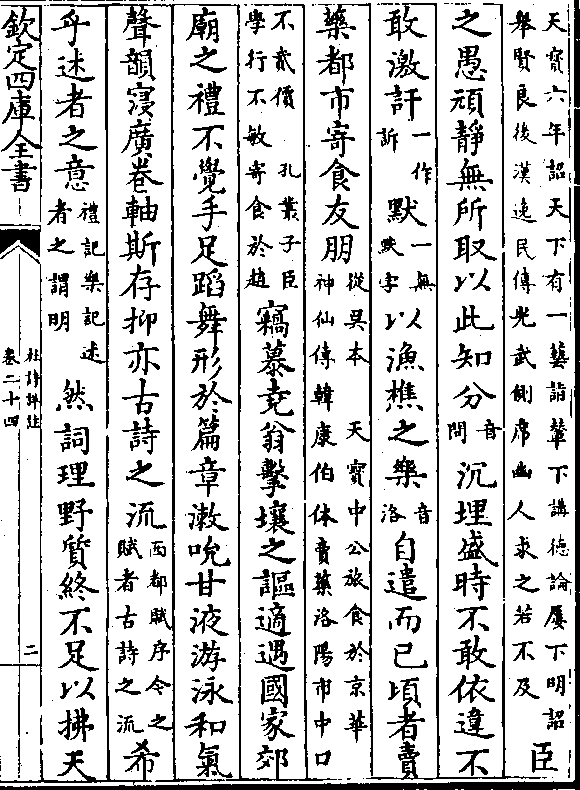 天寳六年詔天下有一藝詣輦下講德論屢下明詔
舉賢良後漢逸民傳光武側席幽人求之若不及臣
之愚頑靜無所取以此知分音問沉埋盛時不敢依違不
敢激訐一作訴默一無默字以漁樵之樂音洛自遣而已頃者賣
藥都市寄食友朋從吳本 天寳中公旅食於京華
神仙傳韓康伯休賣藥洛陽市中口
不貳價 孔叢子臣
學行不敏寄食於趙竊慕堯翁擊壤之謳適遇國家郊
廟之禮不覺手足蹈舞形於篇章漱吮甘液游泳和氣
聲韻寖廣卷軸斯存抑亦古詩之流西都賦序今之賦者古詩之流希
乎述者之意禮記樂記述者之謂明然詞理野質終不足以拂天
欽定四庫全書
杜詩詳註
卷二十四
二